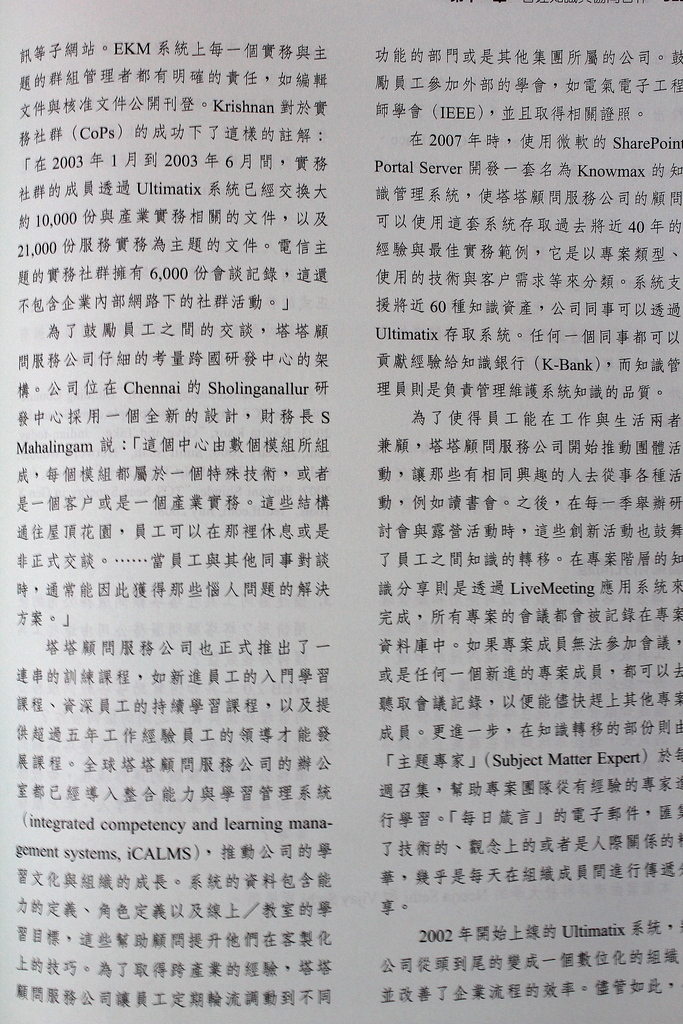 訊等子網站。EKM 系統上每一個實務與主
題的群組管理者都有明確的責任，如編輯
文件與核准文件公開刊登。Krishnan 對於實
務社群（CoPs）的成功下了這樣的註解：
「在 2003 年 1 月到 2003 年 6 月間，實務
社群的成員透過 Ultimatix 系統已經交換大
約 10,000 份與產業實務相關的文件，以及
21,000 份服務實務為主題的文件。電信主
題的實務社群擁有 6,000 份會談記錄，這還
不包含企業內部網路下的社群活動。」
為了鼓勵員工之間的交談，塔塔顧
問服務公司仔細的考量跨國研發中心的架
構。公司位在 Chennai 的 Sholinganallur 研
發中心採用一個全新的設計，財務長 S
Mahalingam 說：「這個中心由數個模組所組
成，每個模組都屬於一個特殊技術，或者
是一個客戶或是一個產業實務。這些結構
通往屋頂花園，員工可以在那裡休息或是
非正式交談。……當員工與其他同事對談
時，通常能因此獲得那些惱人問題的解決
方案。」
塔塔顧問服務公司也正式推出了一
連串的訓練課程，如新進員工的入門學習
課程、資深員工的持續學習課程，以及提
供超過五年工作經驗員工的領導才能發
展課程。全球塔塔顧問服務公司的辦公
室都已經導入整合能力與學習管理系統
（integrated competency and learning mana-
gement systems, iCALMS），推動公司的學
習文化與組織的成長。系統的資料包含能
力的定義、角色定義以及線上／教室的學
習目標，這些幫助顧問提升他們在客製化
上的技巧。為了取得跨產業的經驗，塔塔
顧問服務公司讓員工定期輪流調動到不同
功能的部門或是其他集團所屬的公司。鼓
勵員工參加外部的學會，如電氣電子工程
師學會（IEEE），並且取得相關證照。
在 2007 年時，使用微軟的 SharePoint
Portal Server 開發一套名為 Knowmax 的知
識管理系統，使塔塔顧問服務公司的顧問
可以使用這套系統存取過去將近 40 年的
經驗與最佳實務範例，它是以專案類型、
使用的技術與客戶需求等來分類。系統支
援將近 60 種知識資產，公司同事可以透過
Ultimatix 存取系統。任何一個同事都可以
貢獻經驗給知識銀行（K-Bank），而知識管
理員則是負責管理維護系統知識的品質。
為了使得員工能在工作與生活兩者
兼顧，塔塔顧問服務公司開始推動團體活
動，讓那些有相同興趣的人去從事各種活
動，例如讀書會。之後，在每一季舉辦研
討會與露營活動時，這些創新活動也鼓舞
了員工之間知識的轉移。在專案階層的知
識分享則是透過 LiveMeeting 應用系統來
完成，所有專案的會議都會被記錄在專案
資料庫中。如果專案成員無法參加會議，
或是任何一個新進的專案成員，都可以去
聽取會議記錄，以便能儘快趕上其他專案
成員。更進一步，在知識轉移的部份則由
「主題專家」（Subject Matter Expert）於每
週召集，幫助專案團隊從有經驗的專家進
行學習。「每日箴言」的電子郵件，匯集
了技術的、觀念上的或者是人際關係的精
華，幾乎是每天在組織成員間進行傳遞分
享。
2002 年開始上線的 Ultimatix 系統，
公司從頭到尾的變成一個數位化的組織
並改善了企業流程的效率。儘管如此，